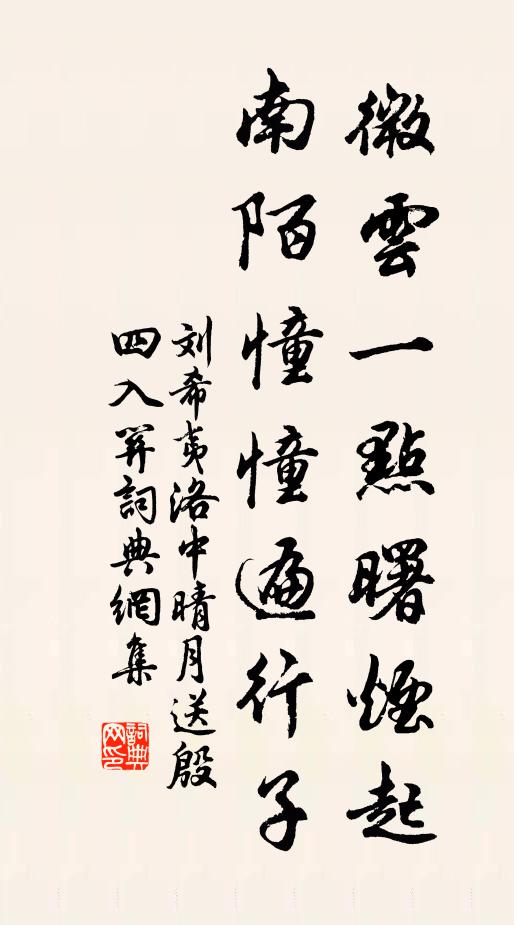 微雲一點曙煙起
南陌憧憧遍行子
刘希夷洛中晴月送殷
四入関詞典網集
詞典網印